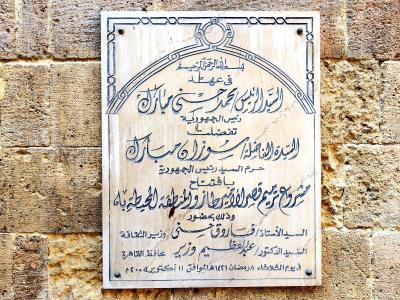 بسم الله الرحمن الرحيم
فى عهد
السيد الرئيس محمد حسنى مبارك
رئيس الجمهورية
تفضلت
السيدة الفاضلة سوزان مبارك
حرم السيد رئيس الجمهورية
بافتتاح
مشروع ترميم قصر الأمير طاز والمنطقة المحيطة به
وذلك بحضور
السيد الأستاذ / فاروق حسنى وزير الثقافة
السيد الدكتور / عبد العظيم وزير محافظ القاهرة
فى يوم الثلاثاء ٨ رمضان ١٤٢٦ هـ الموافق ١١ أكتوبر ٢٠٠٥ م